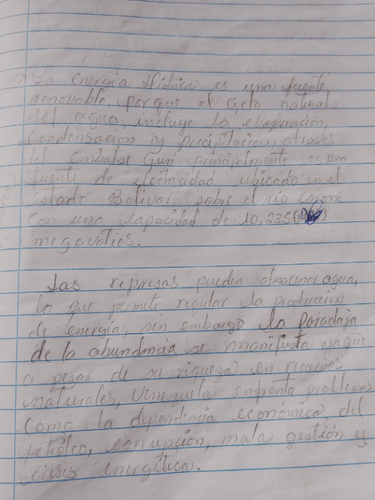 La energía Hídrica es una fuente
renovable, porque el ciclo natural
del agua incluye la evaporación,
Condensación y precipitación, através
el Embalse Guri principalmente es una
fuente de electricidad ubicado en el
Estado Bolívar sobre el río Caroní
con una capacidad de 10,235
megavatios.
Las represas pueden almacenar agua,
lo que permite regular la producción
de energía, sin embargo la paradoja
de la abundancia se manifiesta
a pesar de su riqueza en recursos
naturales, Venezuela enfrenta problemas
como la dependencia económica del
petróleo, corrupción, mala gestión y
crisis energética.